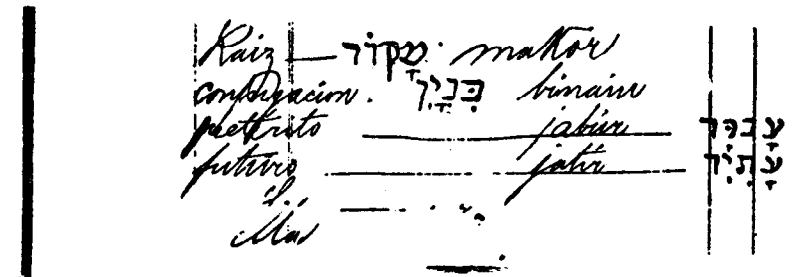 Raiz — מָקוֹר makor
conjugacion. בִּנָיָן binain
preterito jabúr
futuro jatír עָתִיר